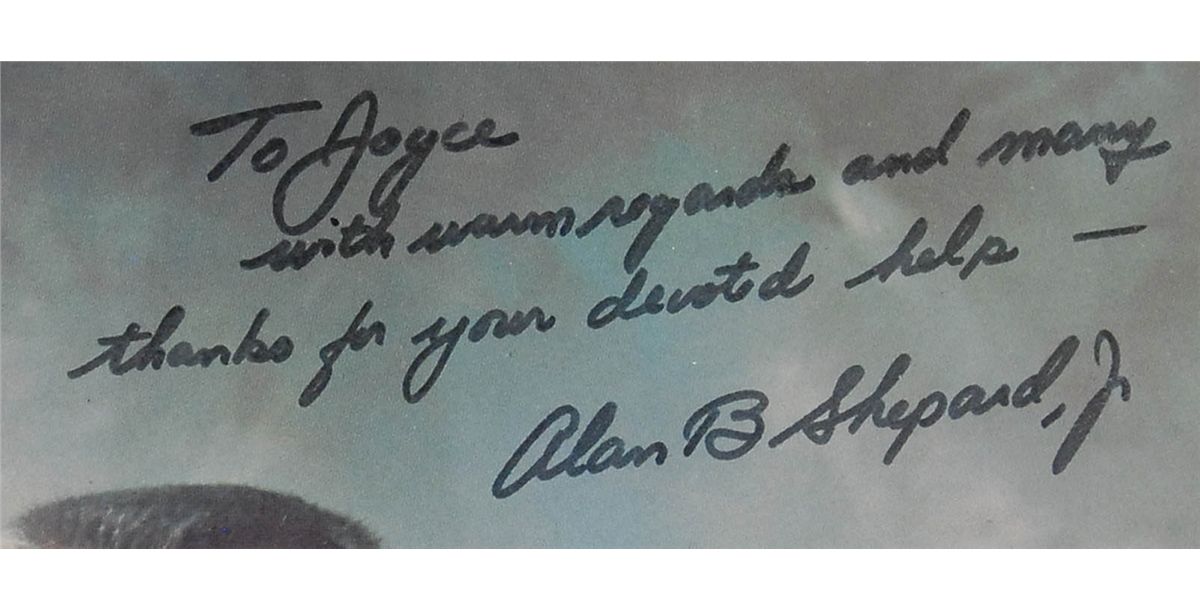 To Joyce
with warm regards and many
thanks for your devoted help —
Alan B Shepard, Jr